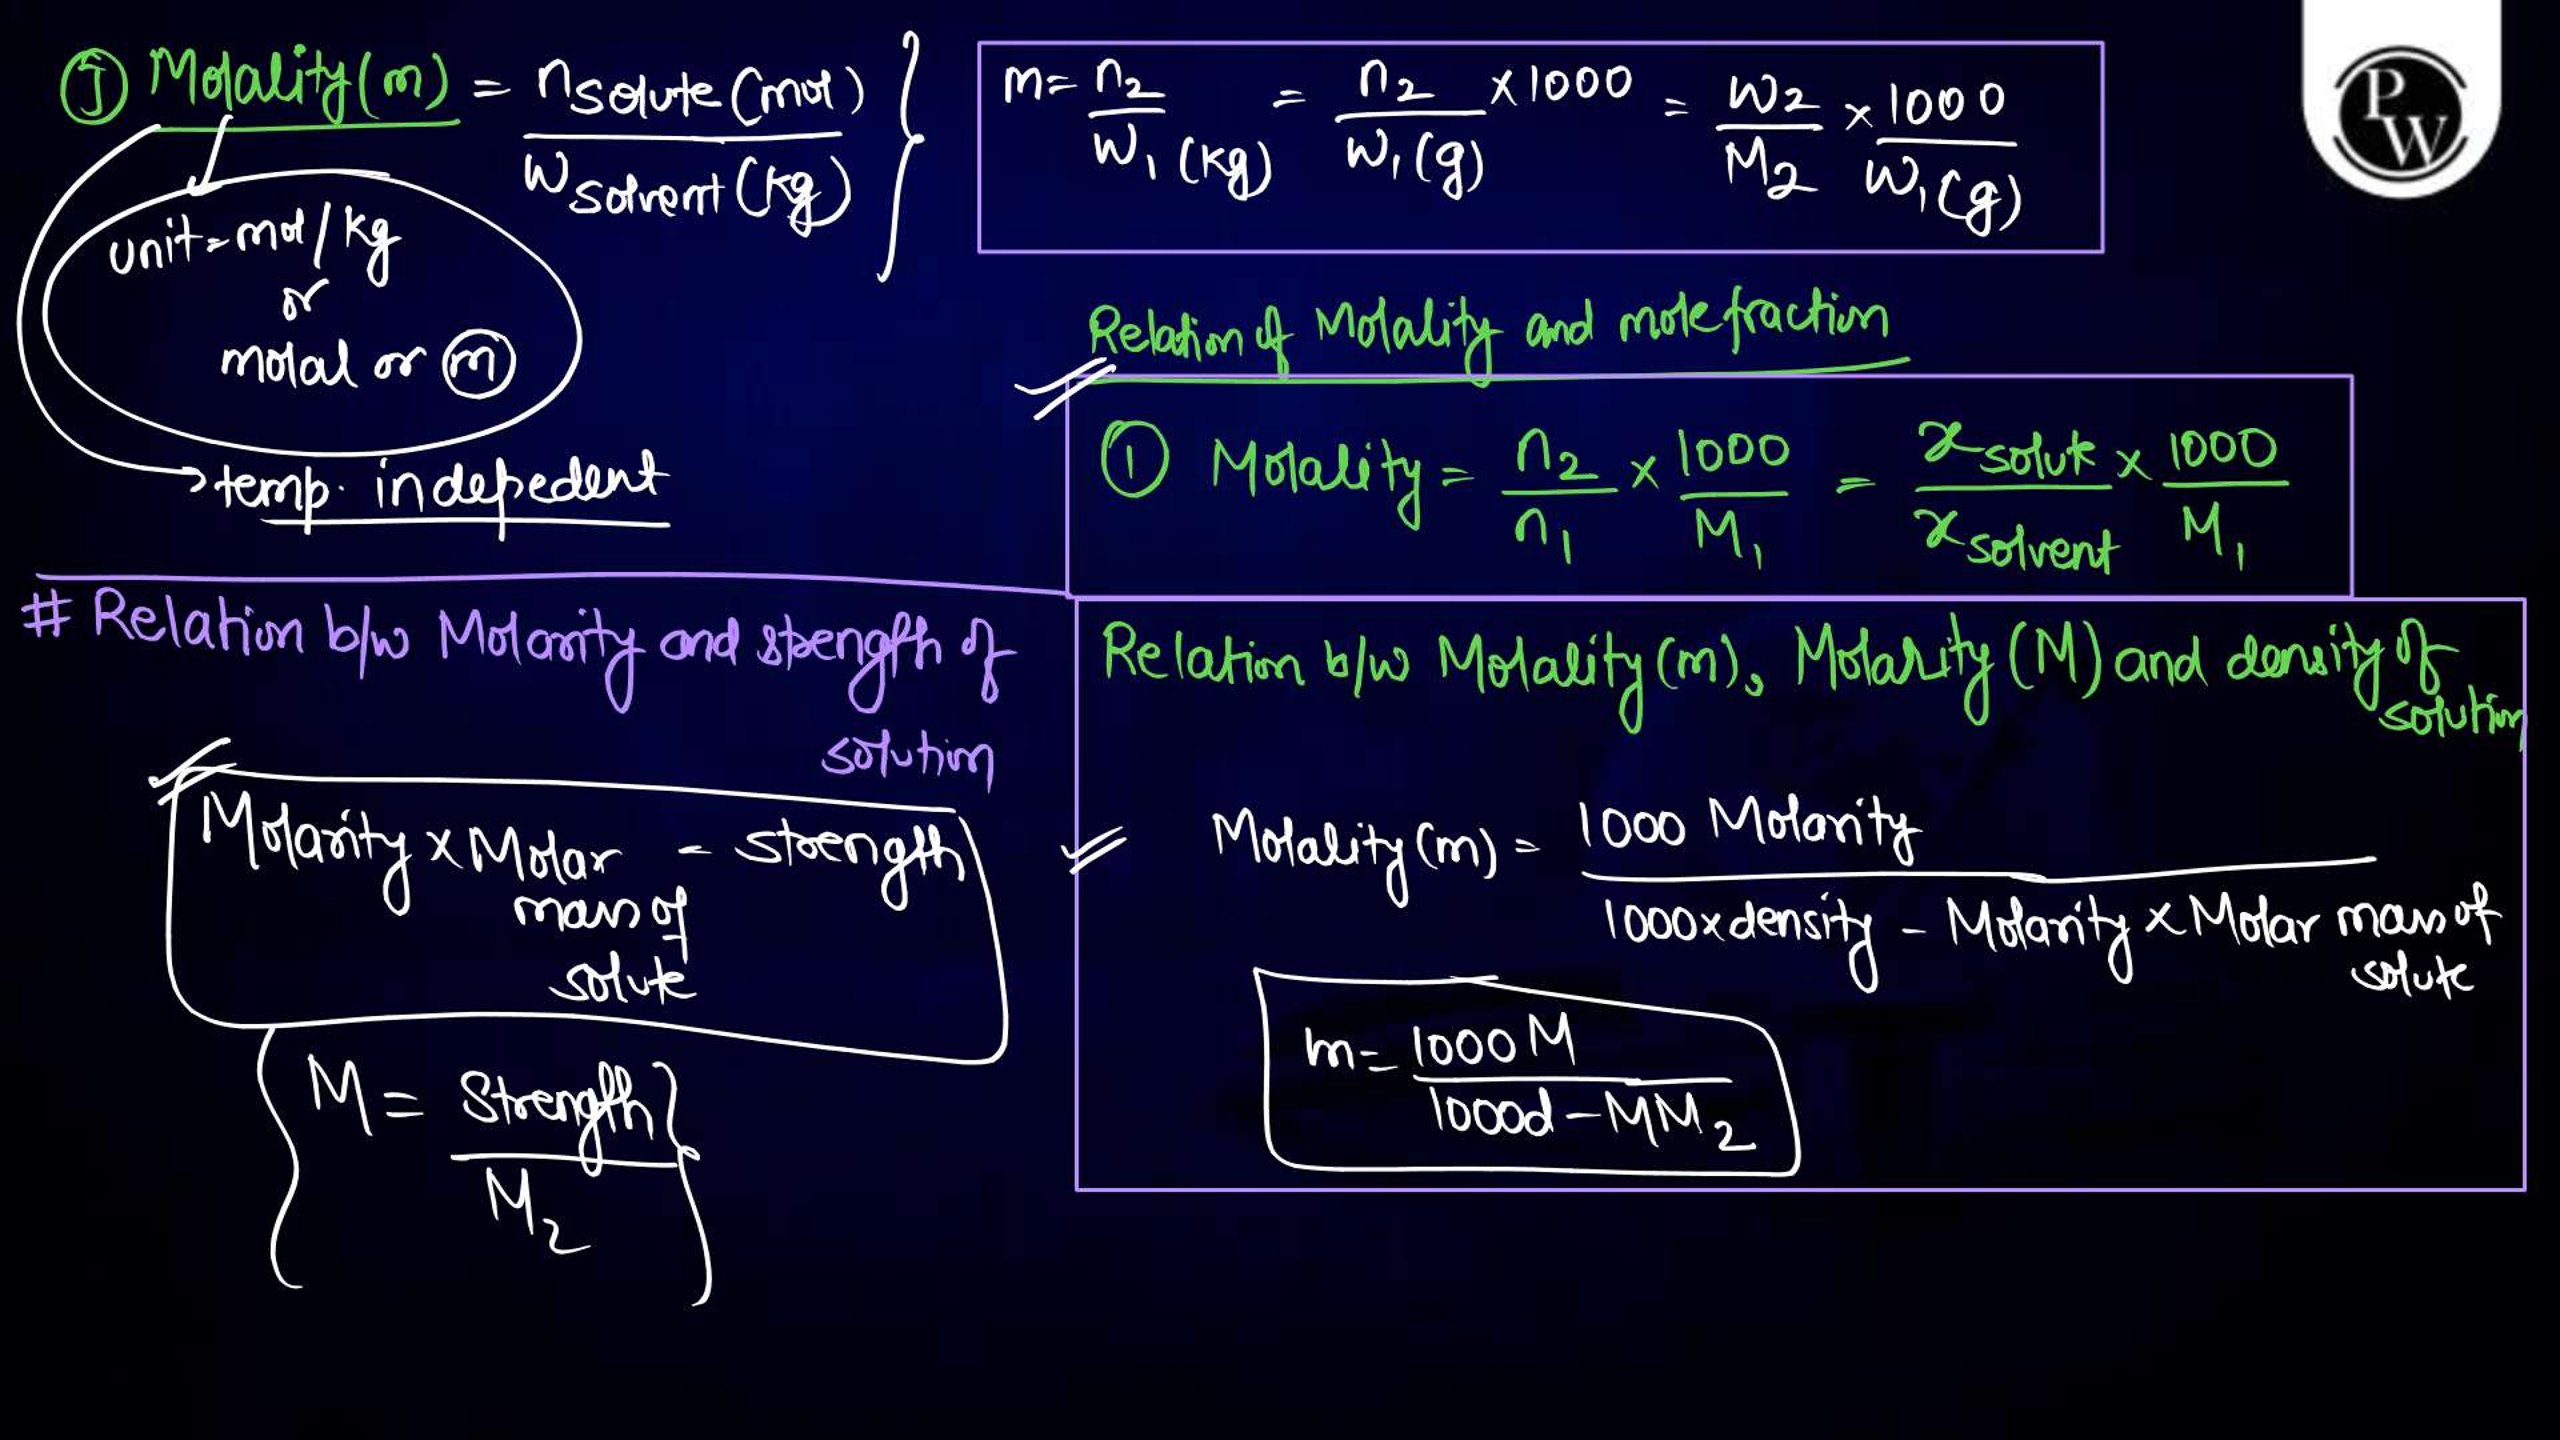 J Molality(m) = nsolute(mol) / Wsolvent(kg)
unit = mol/kg
or
molal or m
→ temp. indepedent
m = n2 / W1(kg) = n2 / W1(g) × 1000 = W2 / M2 × 1000 / W1(g)
PW
Relation of Molality and mole fraction
① Molality = n2 / n1 × 1000 / M1 = xsolute / xsolvent × 1000 / M1
# Relation b/w Molarity and strength of
solution
Molarity × Molar = strength
mass of
solute
M = Strength / M2
Relation b/w Molality(m), Molarity(M) and density of
solution
Molality(m) = 1000 Molarity / 1000×density - Molarity × Molar mass of
solute
m = 1000M / 1000d - MM2